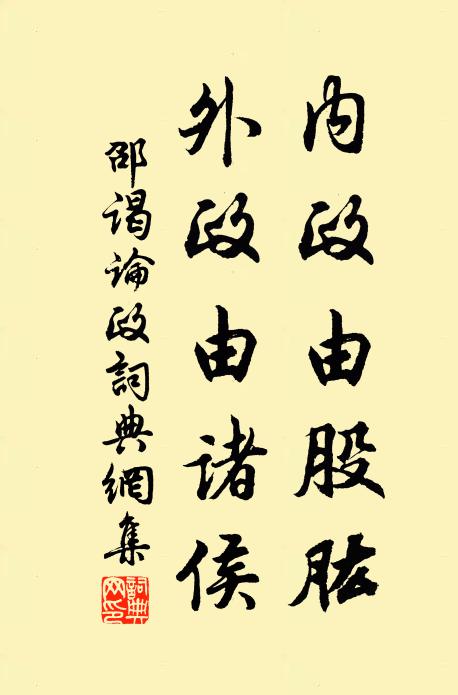 内政由股肱
外政由诸侯
邵谒论政詞典網集
詞典网印